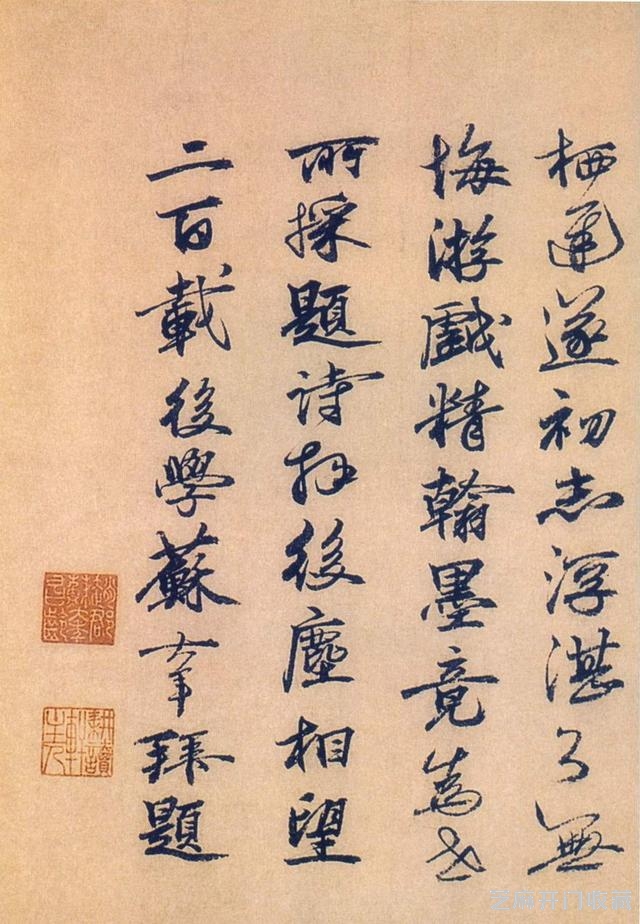 栖遁遂初志浮湛了無
悔游戲精翰墨竟為世
所採題詩拜後塵相望
二百載後學蘇大年拜題